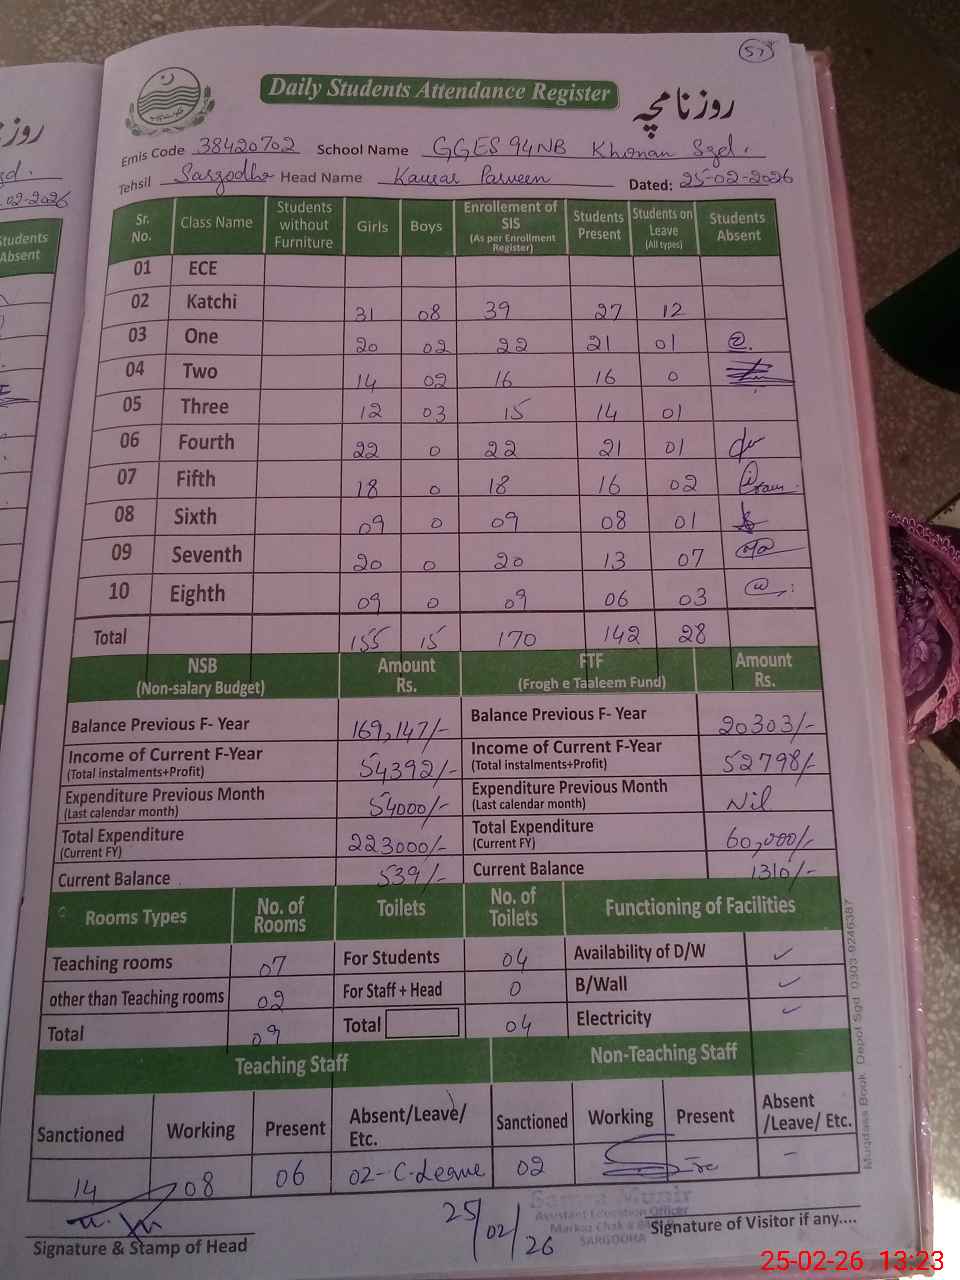 57
Daily Students Attendance Register
روزنامچہ
Emis Code 38420702 School Name GGES 94NB Khonan Sgd.
Tehsil Sargodha Head Name Kausar Parveen Dated: 25-02-2026
Sr. No. Class Name Students without Furniture Girls Boys Enrollement of SIS (As per Enrollment Register) Students Present Students on Leave (All types) Students Absent
01 ECE
02 Katchi 31 08 39 27 12
03 One 20 02 22 21 01
04 Two 14 02 16 16 0
05 Three 12 03 15 14 01
06 Fourth 22 0 22 21 01
07 Fifth 18 0 18 16 02
08 Sixth 09 0 09 08 01
09 Seventh 20 0 20 13 07
10 Eighth 09 0 09 06 03
Total 155 15 170 142 28
NSB (Non-salary Budget) Amount Rs. FTF (Frogh e Taaleem Fund) Amount Rs.
Balance Previous F- Year 169,147/- Balance Previous F- Year 20303/-
Income of Current F-Year (Total instalments+Profit) 54392/- Income of Current F-Year (Total instalments+Profit) 52798/-
Expenditure Previous Month (Last calendar month) 54000/- Expenditure Previous Month (Last calendar month) Nil
Total Expenditure (Current FY) 223000/- Total Expenditure (Current FY) 60,000/-
Current Balance 539/- Current Balance 1310/-
Rooms Types No. of Rooms Toilets No. of Toilets Functioning of Facilities
Teaching rooms 07 For Students 04 Availability of D/W ✓
other than Teaching rooms 02 For Staff + Head 0 B/Wall ✓
Total 09 Total 04 Electricity ✓
Teaching Staff Non-Teaching Staff
Sanctioned Working Present Absent/Leave/ Etc. Sanctioned Working Present Absent /Leave/ Etc.
14 08 06 02-C.Leave 02 -
Samra Munir
Assistant Education Officer
Markaz Chak
SARGODHA
25/02/26
Signature & Stamp of Head Signature of Visitor if any....
Muqdass Book Depot Sgd 0303-9246387
25-02-26 13:23
روزنا
gd.
02-2026
Students Absent